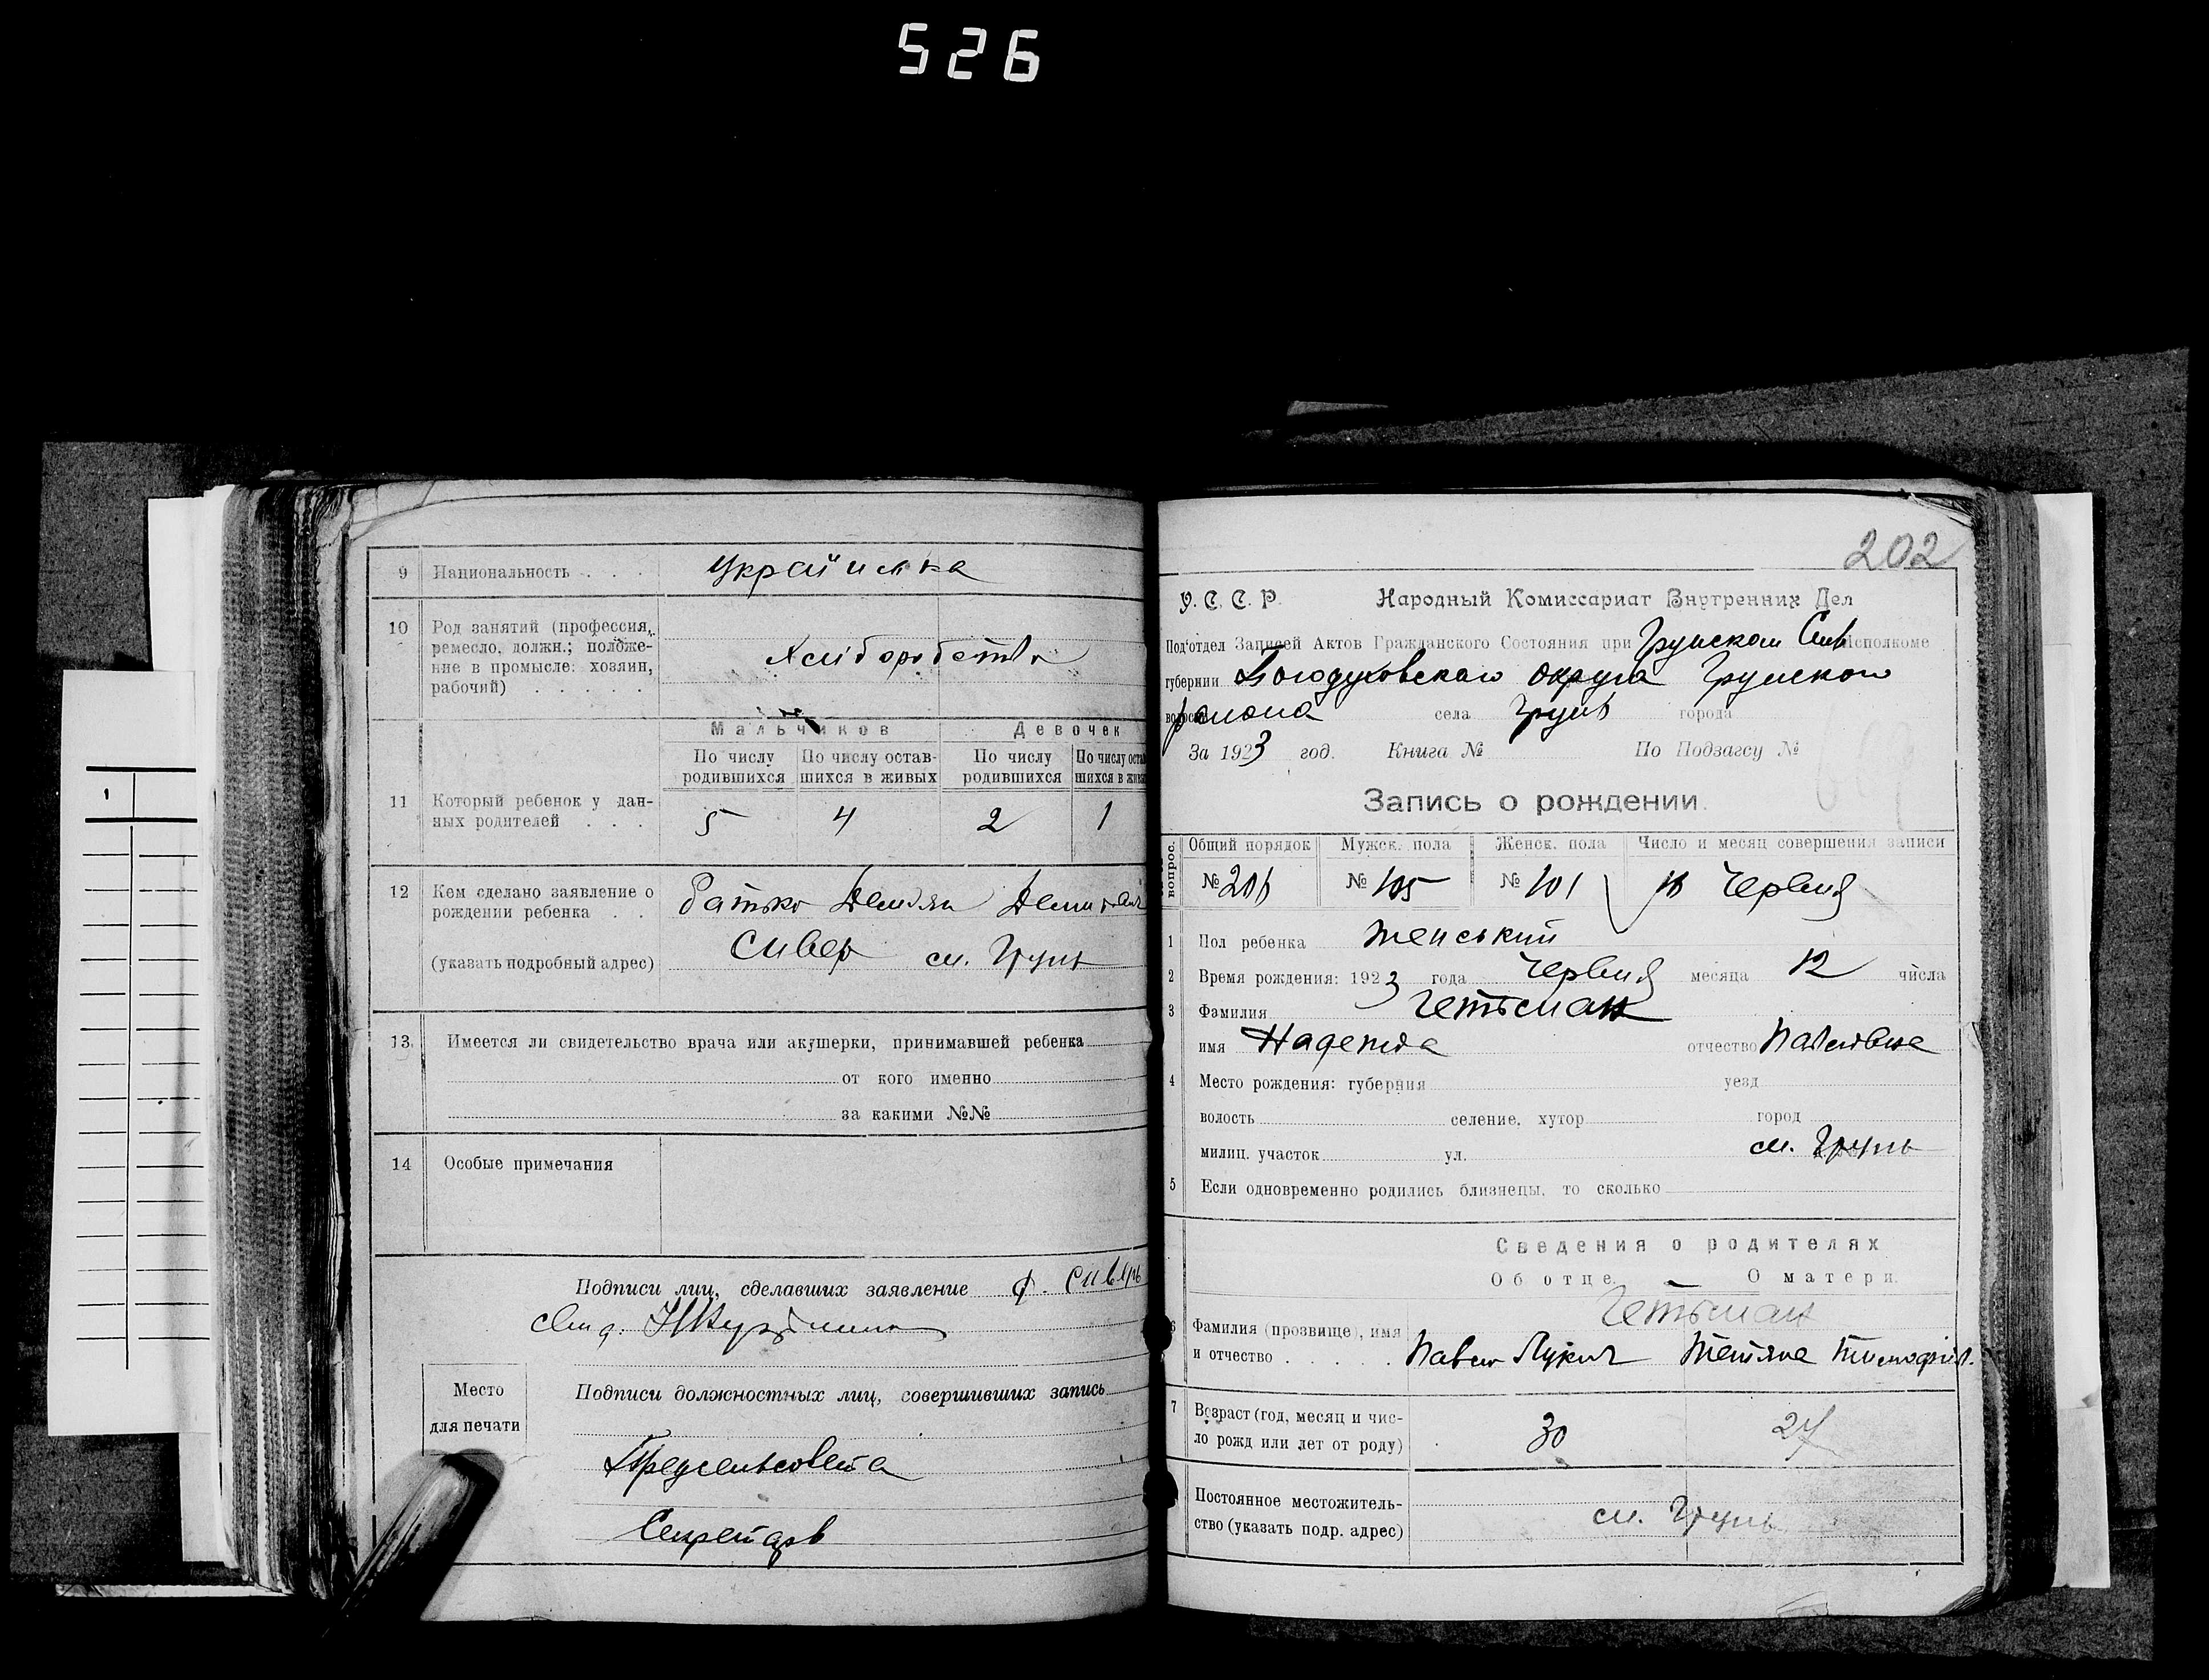 526
9 Национальность . . . Украинка
10 Род занятий (профессия,
ремесло, должн.; положе-
ние в промысле: хозяин,
рабочий) . . . . .
Хліборобство
Мальчиков Девочек
По числу родившихся По числу остав-шихся в живых По числу родившихся По числу оста шихся в жив
11 Который ребенок у дан-
ных родителей . . . 5 4 2 1
12 Кем сделано заявление о
рождении ребенка . . Батько Демян
(указать подробный адрес) Сивер см. Грунь
13. Имеется ли свидетельство врача или акушерки, принимавшей ребенка
от кого именно
за какими №№
14 Особые примечания
Подписи лиц, сделавших заявление
Место
для печати
Подписи должностных лиц, совершивших запись
Предсельсовета
Секретарь
202
У. С. С. Р. Народный Комиссариат Внутренних Дел
Под'отдел Записей Актов Гражданского Состояния при Грунском Сель исполкоме
губернии Богодуховского округа Грунского
района села Грунь города
За 1923 год. Книга № По Подзагсу №
69
Запись о рождении.
вопрос. Общий порядок Мужск. пола Женск. пола Число и месяц совершения записи
№ 206 № 105 № 101 Червня
1 Пол ребенка женський
2 Время рождения: 1923 года Червня месяца 12 числа
3 Фамилия Гетьман
имя Надежда отчество Павловна
4 Место рождения: губерния уезд
волость селение, хутор город
милиц. участок ул. см. Грунь
5 Если одновременно родились близнецы, то сколько
Сведения о родителях
Об отце. О матери.
Гетьман
6 Фамилия (прозвище), имя
и отчество . . . . . Павел Лукич Тетяна Тимофіев.
7 Возраст (год, месяц и чис-
ло рожд или лет от роду) 30 27
Постоянное местожитель-
ство (указать подр. адрес) см. Грунь